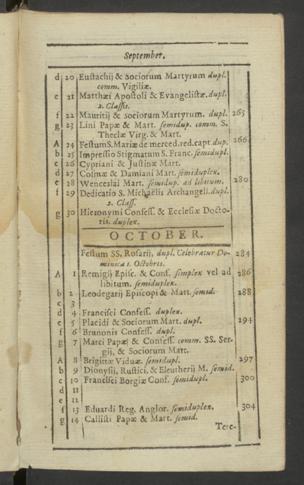 September.
d 20 Eustachij & Sociorum Martyrum dupl.
comm. Vigiliæ.
e 21 Matthæi Apostoli & Evangelistæ. dupl.
2. Classis.
f 22 Mauritij & Sociorum Martyrum. dupl. 265
g 23 Lini Papæ & Mart. semidup. comm. S.
Theclæ Virg. & Mart.
A 24 Festum S. Mariæ de merced. red. capt. dup. 266
b 25 Impressio Stigmatum S. Franc. semidupl.
c 26 Cypriani & Justinæ Mart.
d 27 Cosmæ & Damiani Mart. semiduplex.
e 28 Wenceslai Mart. semidup. ad libitum. 280
f 29 Dedicatio S Michaelis Archangeli. dupl.
2. Class.
g 30 Hieronymi Confess. & Ecclesiæ Docto-
ris. duplex.
OCTOBER.
Festum SS. Rosarij, dupl. Celebratur Do- 284
minica 1. Octobris.
A 1 Remigij Episc. & Conf. simplex vel ad 286
libitum. semiduplex.
b 2 Leodegarij Episcopi & Mart. semid. 288
c 3
d 4 Francisci Confess. duplex.
e 5 Placidi & Sociorum Mart. dupl. 294
f 6 Brunonis Confess. dupl.
g 7 Marci Papæ & Confess. comm. SS. Ser-
gij, & Sociorum Mart.
A 8 Brigittæ Viduæ. semidupl. 297
b 9 Dionysij, Rustici, & Eleutherij M. semid.
c 10 Francisci Borgiæ Conf. semidupl. 300
d 11
e
f 13 Eduardi Reg. Anglor. semiduplex. 304
g 14 Callisti Papæ & Mart. semid.
Tere-